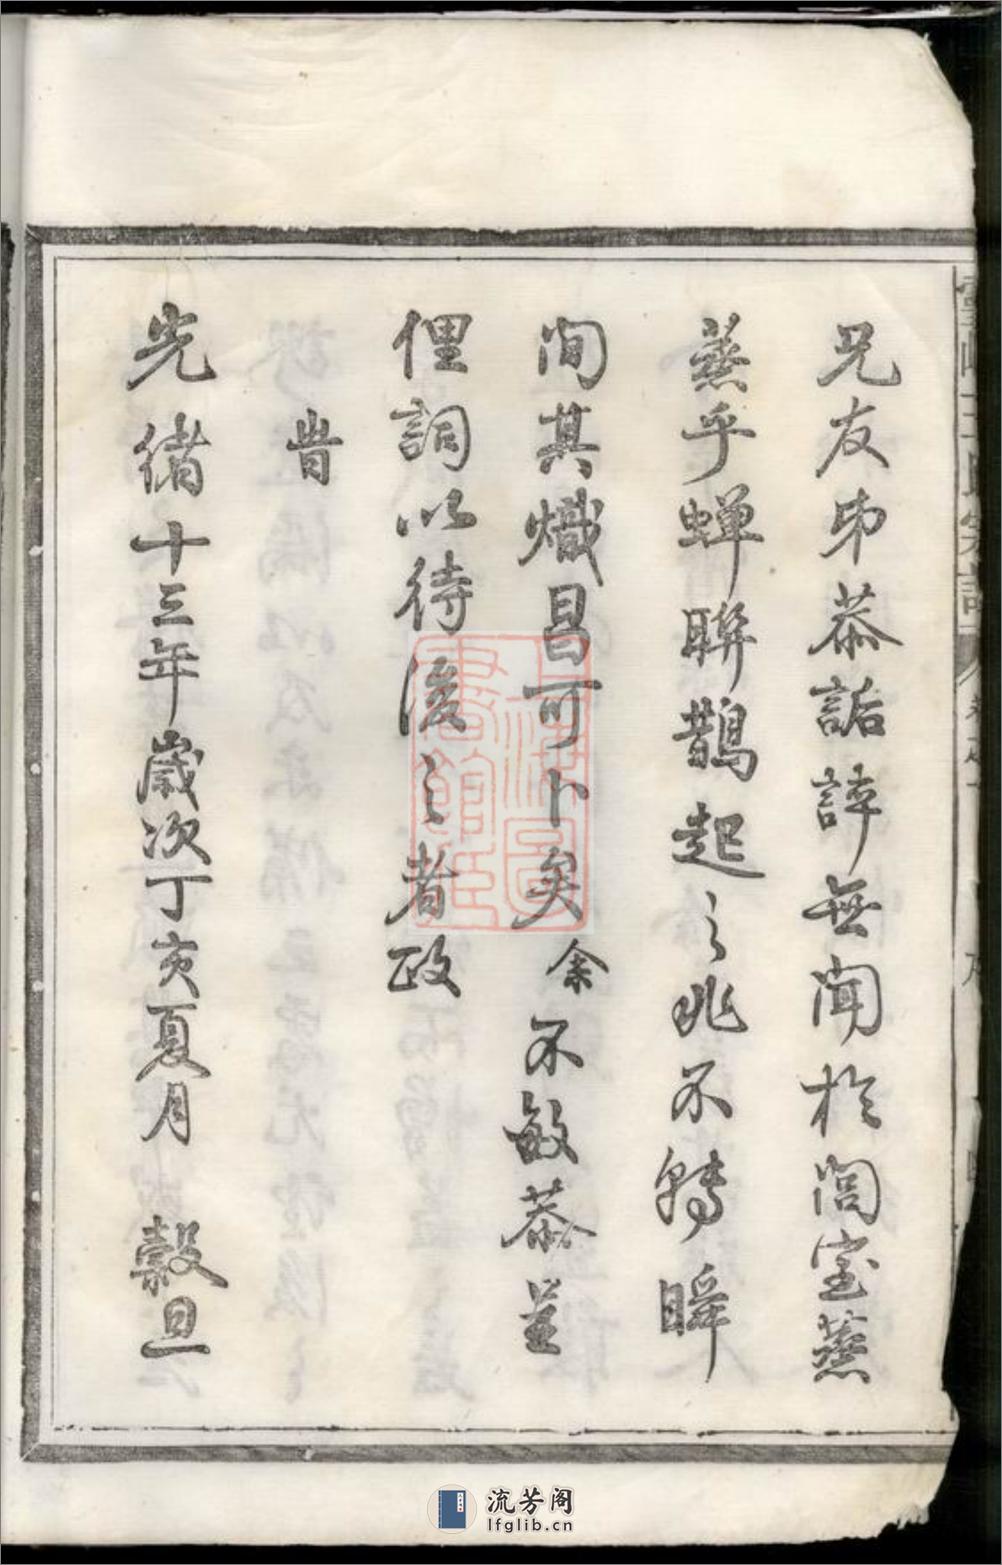 兄友弟恭詬誶無聞於閭室蒸
蒸乎蟬聯鵲起之兆不轉瞬
间其熾昌可卜矣余不敏恭呈
俚詞以待後之者政
旹
光緒十三年歲次丁亥夏月 穀旦
上海圖書館藏
流芳阁
lfglib.cn